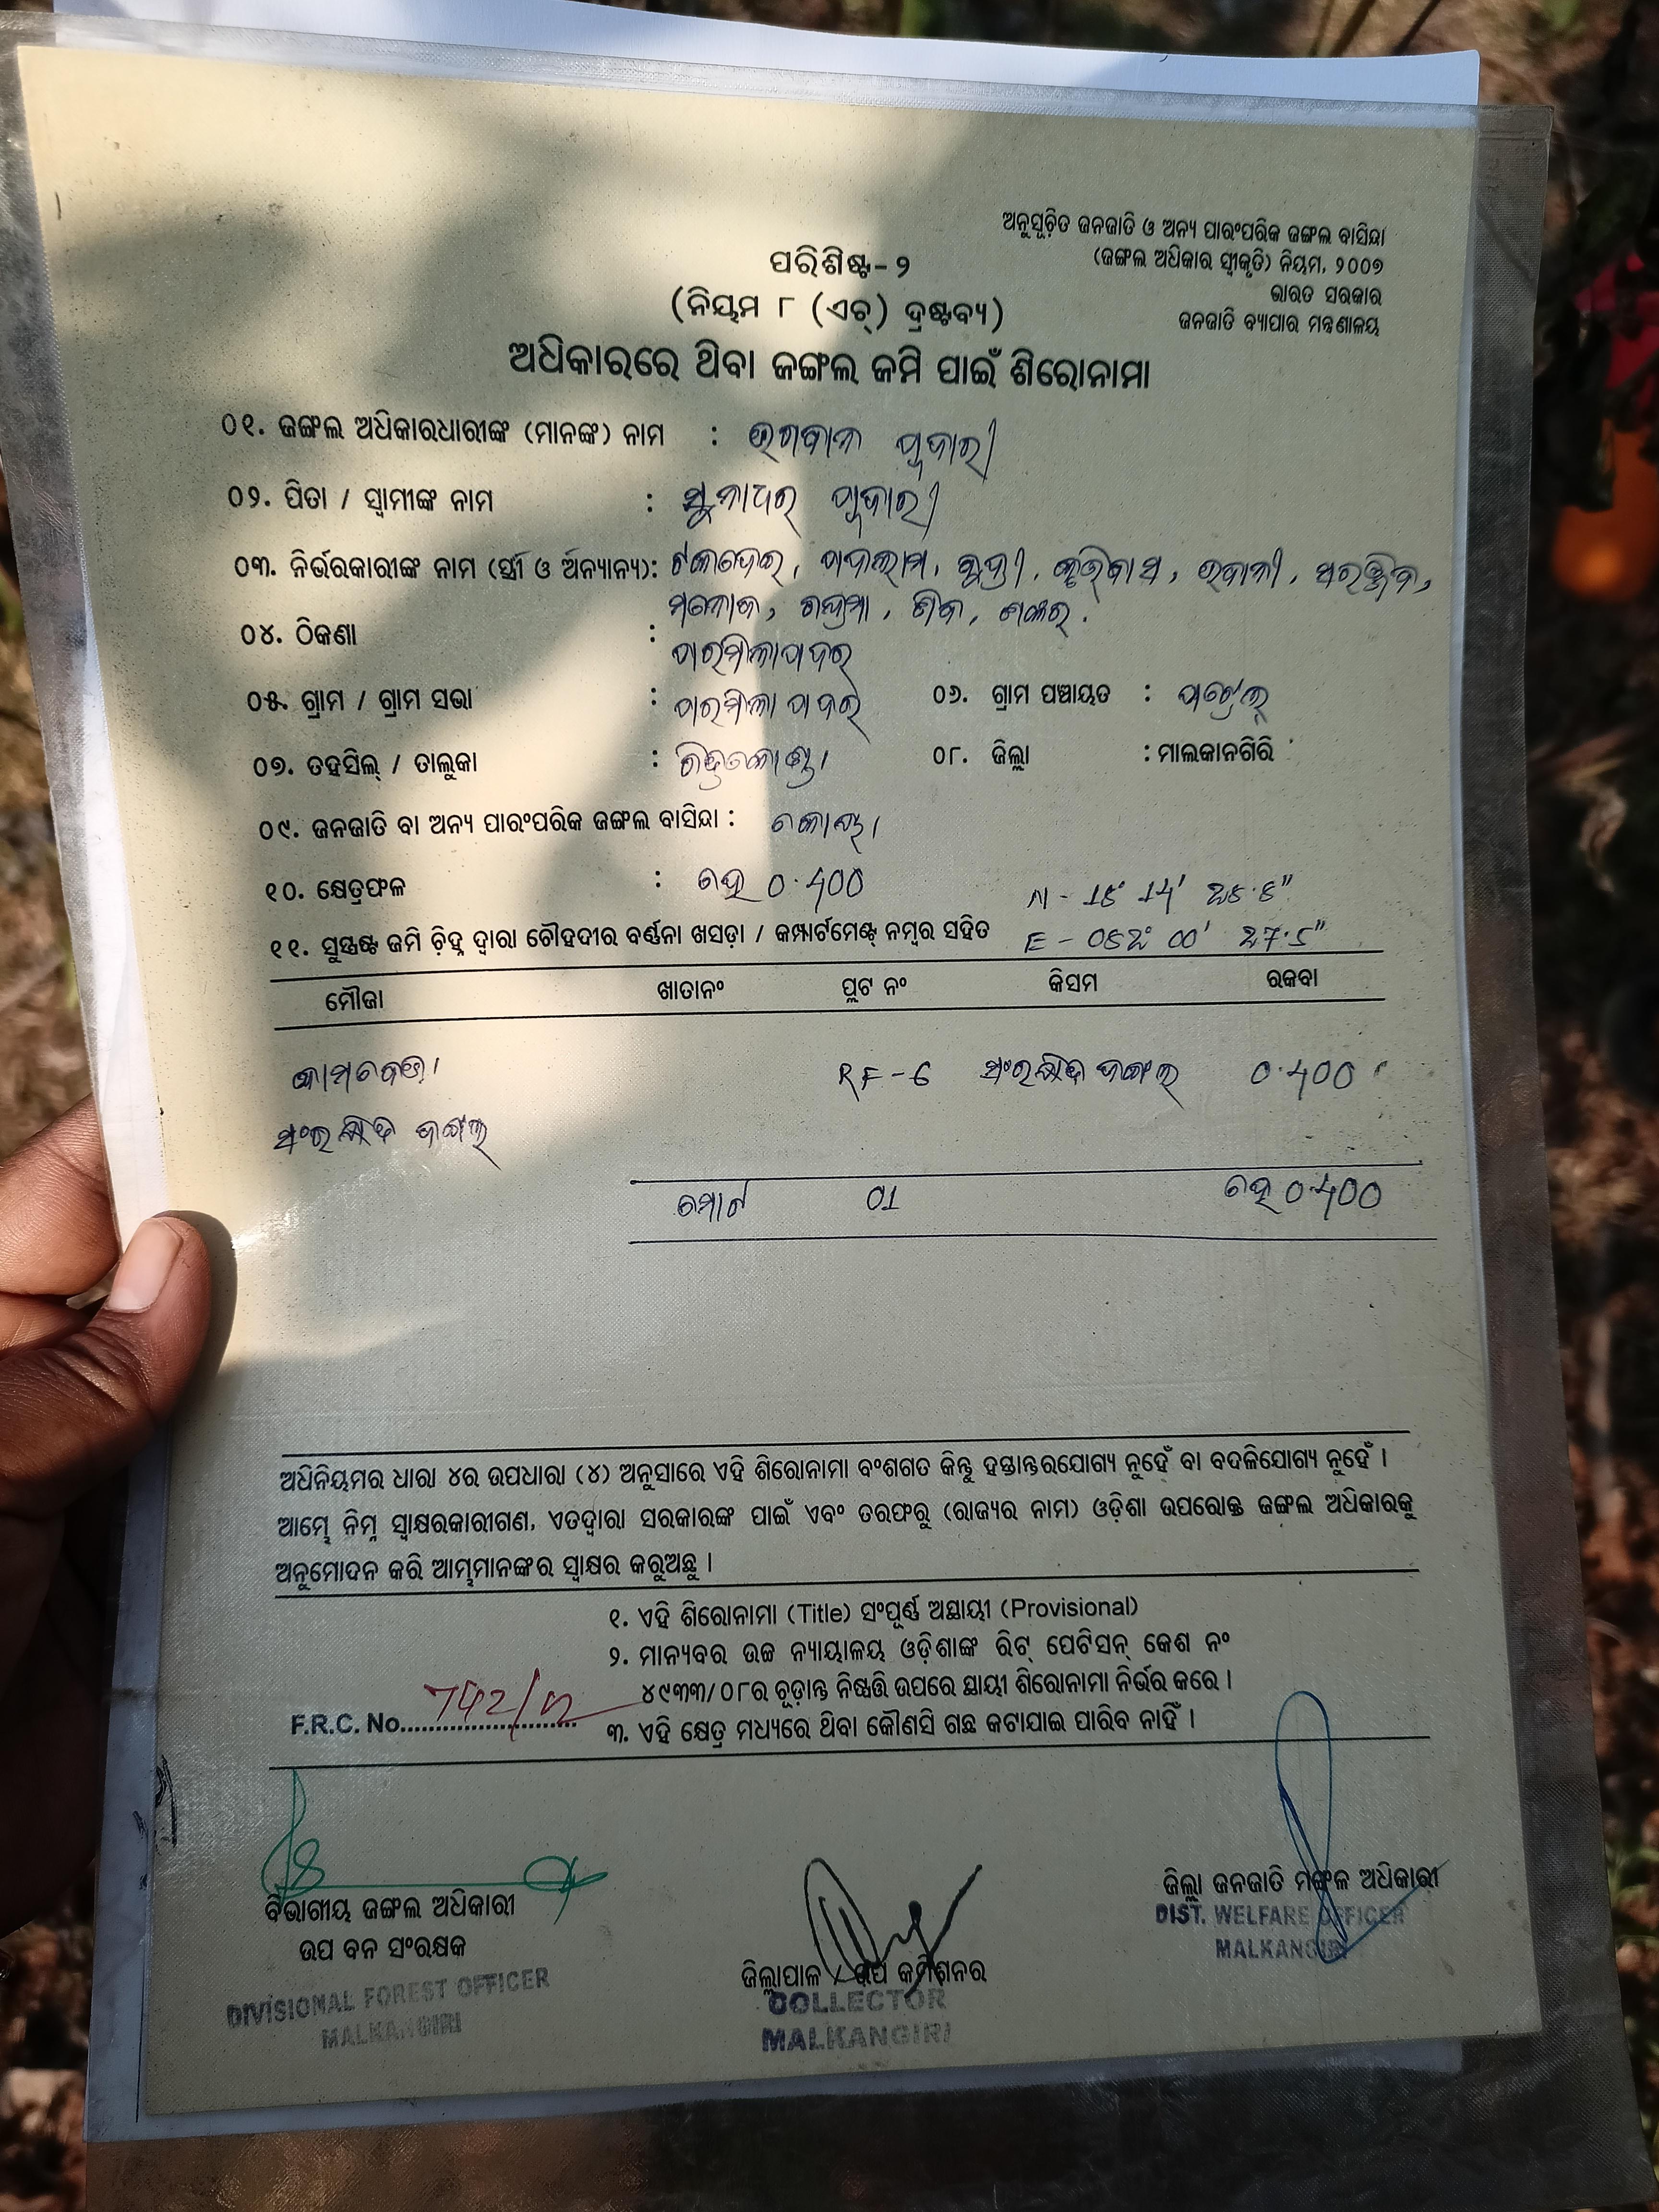 ଅନୁସୂଚିତ ଜନଜାତି ଓ ଅନ୍ୟ ପାରଂପରିକ ଜଙ୍ଗଲ ବାସିନ୍ଦା
(ଜଙ୍ଗଲ ଅଧିକାର ସ୍ୱୀକୃତି) ନିୟମ, ୨୦୦୭
ଭାରତ ସରକାର
ଜନଜାତି ବ୍ୟାପାର ମନ୍ତ୍ରଣାଳୟ
ପରିଶିଷ୍ଟ-୨
(ନିୟମ ୮ (ଏଚ୍) ଦ୍ରଷ୍ଟବ୍ୟ)
ଅଧିକାରରେ ଥିବା ଜଙ୍ଗଲ ଜମି ପାଇଁ ଶିରୋନାମା
୦୧. ଜଙ୍ଗଲ ଅଧିକାରଧାରୀଙ୍କ (ମାନଙ୍କ) ନାମ : ଭଗବାନ ପୂଜାରୀ
୦୨. ପିତା / ସ୍ୱାମୀଙ୍କ ନାମ : ସୁନାଧର ପୂଜାରୀ
୦୩. ନିର୍ଭରକାରୀଙ୍କ ନାମ (ସ୍ତ୍ରୀ ଓ ଅନ୍ୟାନ୍ୟ):
ମନୋଜ, ଶିବ, ଶଙ୍କର.
୦୪. ଠିକଣା : ପାରମିଲାପଦର
୦୫. ଗ୍ରାମ / ଗ୍ରାମ ସଭା : ପାରମିଲାପଦର ୦୬. ଗ୍ରାମ ପଞ୍ଚାୟତ :
୦୭. ତହସିଲ୍ / ତାଲୁକା : ଚିତ୍ରକୋଣ୍ଡା ୦୮. ଜିଲ୍ଲା : ମାଲକାନଗିରି
୦୯. ଜନଜାତି ବା ଅନ୍ୟ ପାରଂପରିକ ଜଙ୍ଗଲ ବାସିନ୍ଦା :
୧୦. କ୍ଷେତ୍ରଫଳ : ହେ 0.400
୧୧. ସୁସ୍ପଷ୍ଟ ଜମି ଚିହ୍ନ ଦ୍ୱାରା ଚୌହଦୀର ବର୍ଣ୍ଣନା ଖସଡ଼ା / କମ୍ପାର୍ଟମେଣ୍ଟ୍ ନମ୍ବର ସହିତ
ମୌଜା ଖାତାନଂ ପ୍ଲଟ ନଂ କିସମ ରକବା
RF-6 ସଂରକ୍ଷିତ ଜଙ୍ଗଲ 0.400
ସଂରକ୍ଷିତ ଜଙ୍ଗଲ
ମୋଟ 01 ହେ 0.400
ଅଧିନିୟମର ଧାରା ୪ର ଉପଧାରା (୪) ଅନୁସାରେ ଏହି ଶିରୋନାମା ବଂଶଗତ କିନ୍ତୁ ହସ୍ତାନ୍ତରଯୋଗ୍ୟ ନୁହେଁ ବା ବଦଳିଯୋଗ୍ୟ ନୁହେଁ ।
ଆମ୍ଭେ ନିମ୍ନ ସ୍ୱାକ୍ଷରକାରୀଗଣ, ଏତଦ୍ୱାରା ସରକାରଙ୍କ ପାଇଁ ଏବଂ ତରଫରୁ (ରାଜ୍ୟର ନାମ) ଓଡ଼ିଶା ଉପରୋକ୍ତ ଜଙ୍ଗଲ ଅଧିକାରକୁ
ଅନୁମୋଦନ କରି ଆମ୍ଭମାନଙ୍କର ସ୍ୱାକ୍ଷର କରୁଅଛୁ ।
୧. ଏହି ଶିରୋନାମା (Title) ସଂପୂର୍ଣ୍ଣ ଅସ୍ଥାୟୀ (Provisional)
୨. ମାନ୍ୟବର ଉଚ୍ଚ ନ୍ୟାୟାଳୟ ଓଡ଼ିଶାଙ୍କ ରିଟ୍ ପେଟିସନ୍ କେଶ ନଂ
୪୯୩୩/୦୮ର ଚୂଡ଼ାନ୍ତ ନିଷ୍ପତ୍ତି ଉପରେ ସ୍ଥାୟୀ ଶିରୋନାମା ନିର୍ଭର କରେ ।
F.R.C. No.
୩. ଏହି କ୍ଷେତ୍ର ମଧ୍ୟରେ ଥିବା କୌଣସି ଗଛ କଟାଯାଇ ପାରିବ ନାହିଁ ।
ବିଭାଗୀୟ ଜଙ୍ଗଲ ଅଧିକାରୀ
ଉପ ବନ ସଂରକ୍ଷକ
DIVISIONAL FOREST OFFICER
MALKANGIRI
ଜିଲ୍ଲାପାଳ / ଉପ କମିଶନର
COLLECTOR
MALKANGIRI
ଜିଲ୍ଲା ଜନଜାତି ମଙ୍ଗଳ ଅଧିକାରୀ
DIST. WELFARE OFFICER
MALKANGIRI